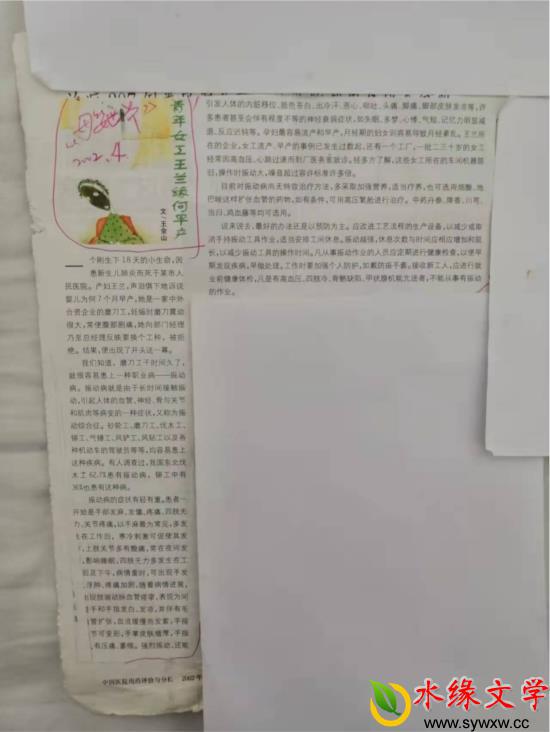 《母婴世界》
2002.4.
青年女工王兰缘何早产
文·王金山
一个刚生下18天的小生命,因
患新生儿肺炎而死于某市人
民医院。产妇王兰,声泪俱下地诉说
婴儿为何7个月早产,她是一家中外
合资企业的磨刀工,妊娠时磨刀震动
很大,常使腹部剧痛,她向部门经理
乃至总经理反映要换个工种,被拒
绝。结果,便出现了开头这一幕。
我们知道,磨刀工干时间久了,
就很容易患上一种职业病——振动
病。振动病就是由于长时间接触振
动,引起人体的血管、神经、骨与关节
和肌肉等病变的一种症状,又称为振
动综合征。砂轮工、磨刀工、伐木工、
铆工、气锤工、风铲工、风钻工以及各
种机动车的驾驶员等等,均容易患上
这种疾病。有人调查过,我国东北伐
木工62.7%患有振动病,铆工中有
36%也患有这种病。
振动病的症状有轻有重。患者一
开始是手部发麻、发僵、疼痛、四肢无
力、关节疼痛,以手麻最为常见,多发
生在工作后,寒冷刺激可促使其发
,上肢关节多有酸痛,常在夜间发
,影响睡眠,四肢无力多发生在工
后及下午,病情重时,可出现手发
、浮肿、疼痛加剧,随着病情进展,
出现肢端动脉血管痉挛,表现为间
手和手指发白、发凉,并伴有毛
管扩张,血流缓慢而发紫;手指
节可变形,手掌皮肤增厚,手指
,有压痛、萎缩。强烈振动,还能
引发人体的内脏移位、脸色苍白、出冷汗、恶心、呕吐、头痛、脚痛、脚部皮肤发凉等,许
多患者甚至会伴有程度不等的神经衰弱症状,如失眠、多梦、心悸、气短、记忆力明显减
退、反应迟钝等。孕妇最容易流产和早产,月经期的妇女则容易导致月经紊乱。王兰所
在的企业,女工流产、早产的事例已发生过数起,还有一个工厂,一批二三十岁的女工
经常因高血压、心跳过速而到厂医务室就诊。经多方了解,这些女工所在的车间机器陈
旧,操作时振动大,噪音超过容许标准许多倍。
目前对振动病尚无特效治疗方法,多采取加强营养,适当疗养,也可选用烟酸、地
巴唑这样扩张血管的药物,如有条件,可用高压氧舱进行治疗。中药丹参、降香、川芎、
当归、鸡血藤等均可选用。
说来说去,最好的办法还是以预防为主。应改进工艺流程的生产设备,以减少或取
消手持振动工具作业,适当安排工间休息。振动越强,休息次数与时间应相应增加和延
长,以减少振动工具的操作时间。凡从事振动作业的人员应定期进行健康检查,以便早
期发现疾病,早做处理。工作时要加强个人防护,如戴防振手套。接收新工人,应进行就
业前健康体检,凡是有高血压、四肢冷、骨骼缺陷、甲状腺机能亢进者,不能从事有振动
的作业。
中国医院用药评价与分析 2002年
水缘文学
www.sywxw.com